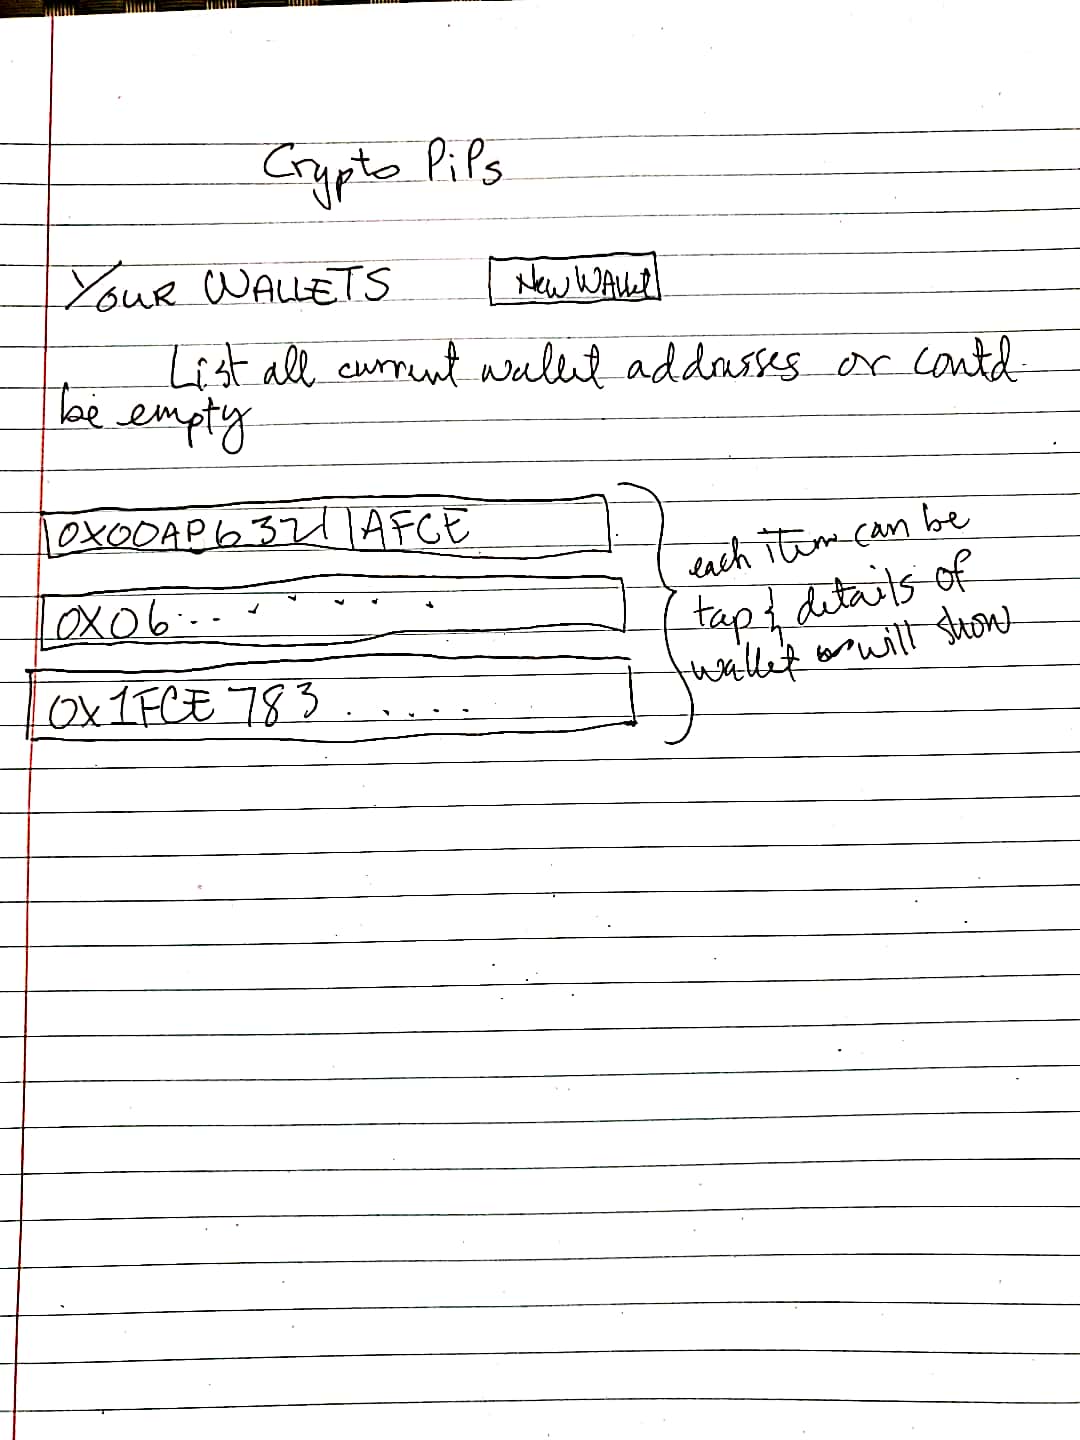 Crypto PiPs
YOUR WALLETS
New WAllet
List all current wallet addresses or
be empty
AFCE
0X06...
0X1FCE 783 . . . . .
each item can be
tap & details of
wallet will show